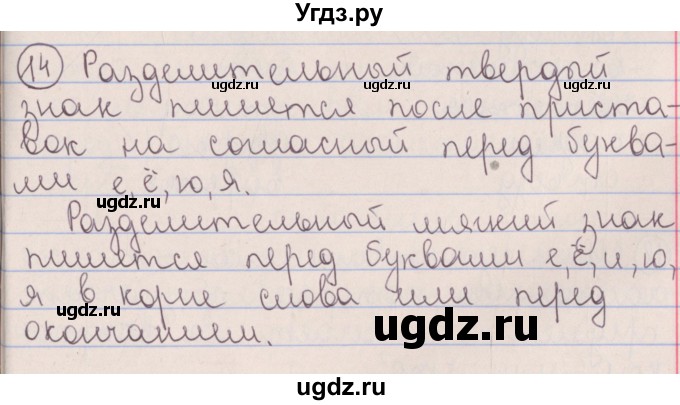 Угдз.ру
14 Разделительный твердый
знак пишется после приста-
вок на согласный перед буква-
ми е, ё, ю, я.
Разделительный мягкий знак
пишется перед буквами е, ё, и, ю,
я в корне слова или перед
окончанием.
ugdz.ru
ugdz.ru
ugdz.ru
ugdz.ru
ugdz.ru
ugdz.ru
ugdz.ru